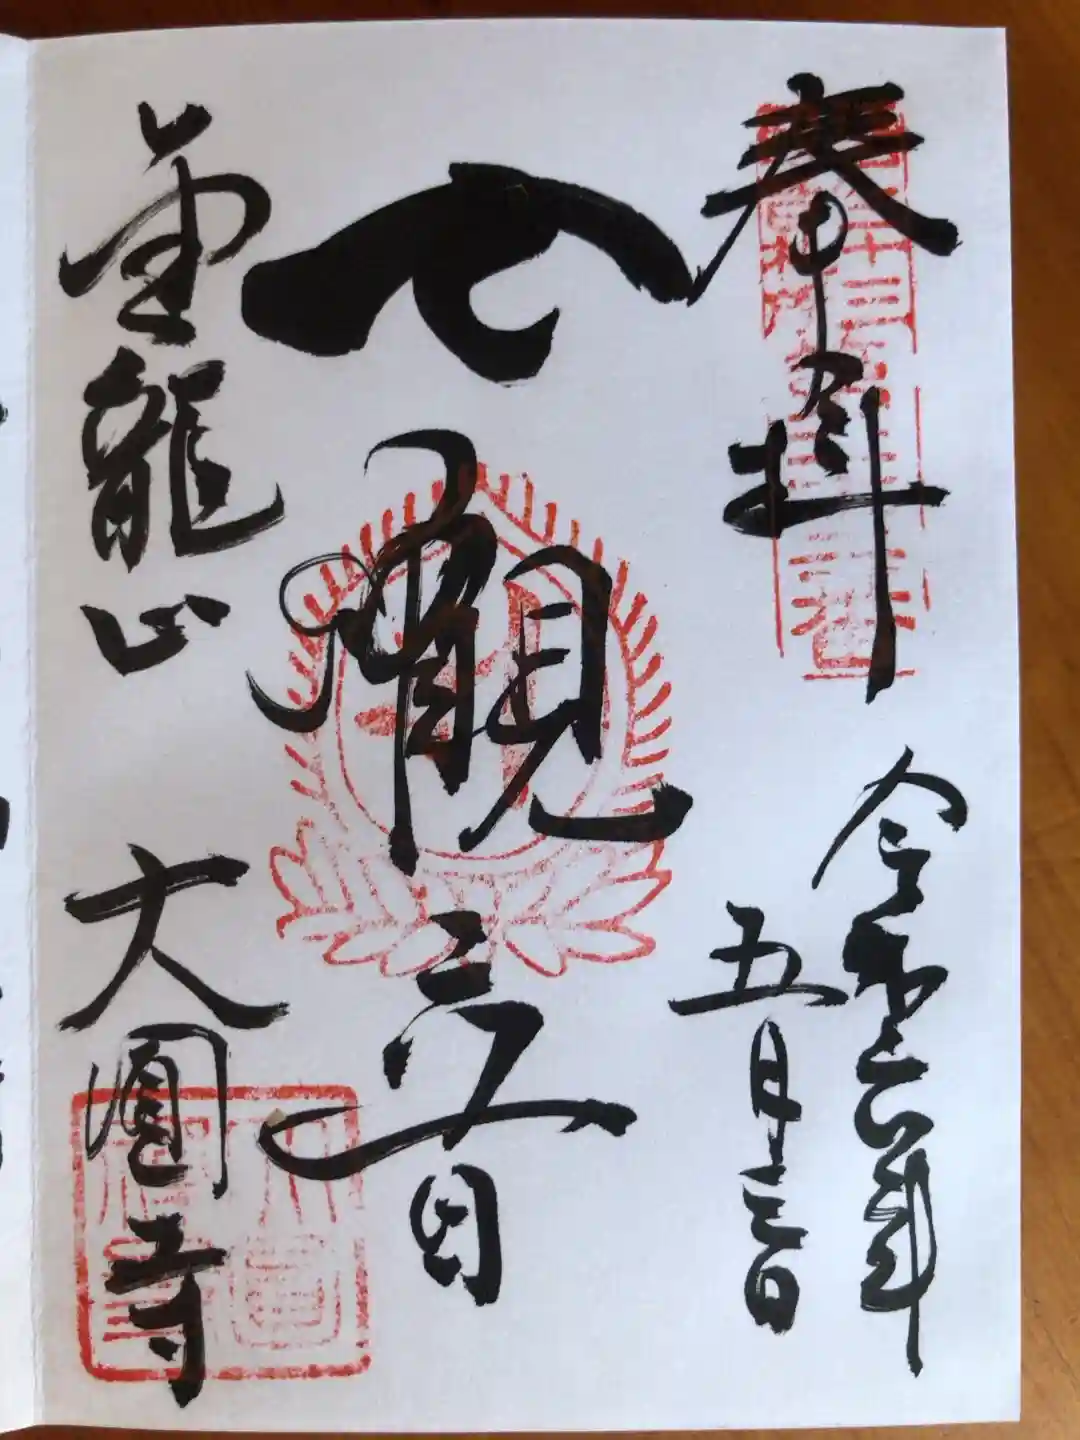 奉拝
令和六年
五月三日
七觀音
金龍山
大圓寺